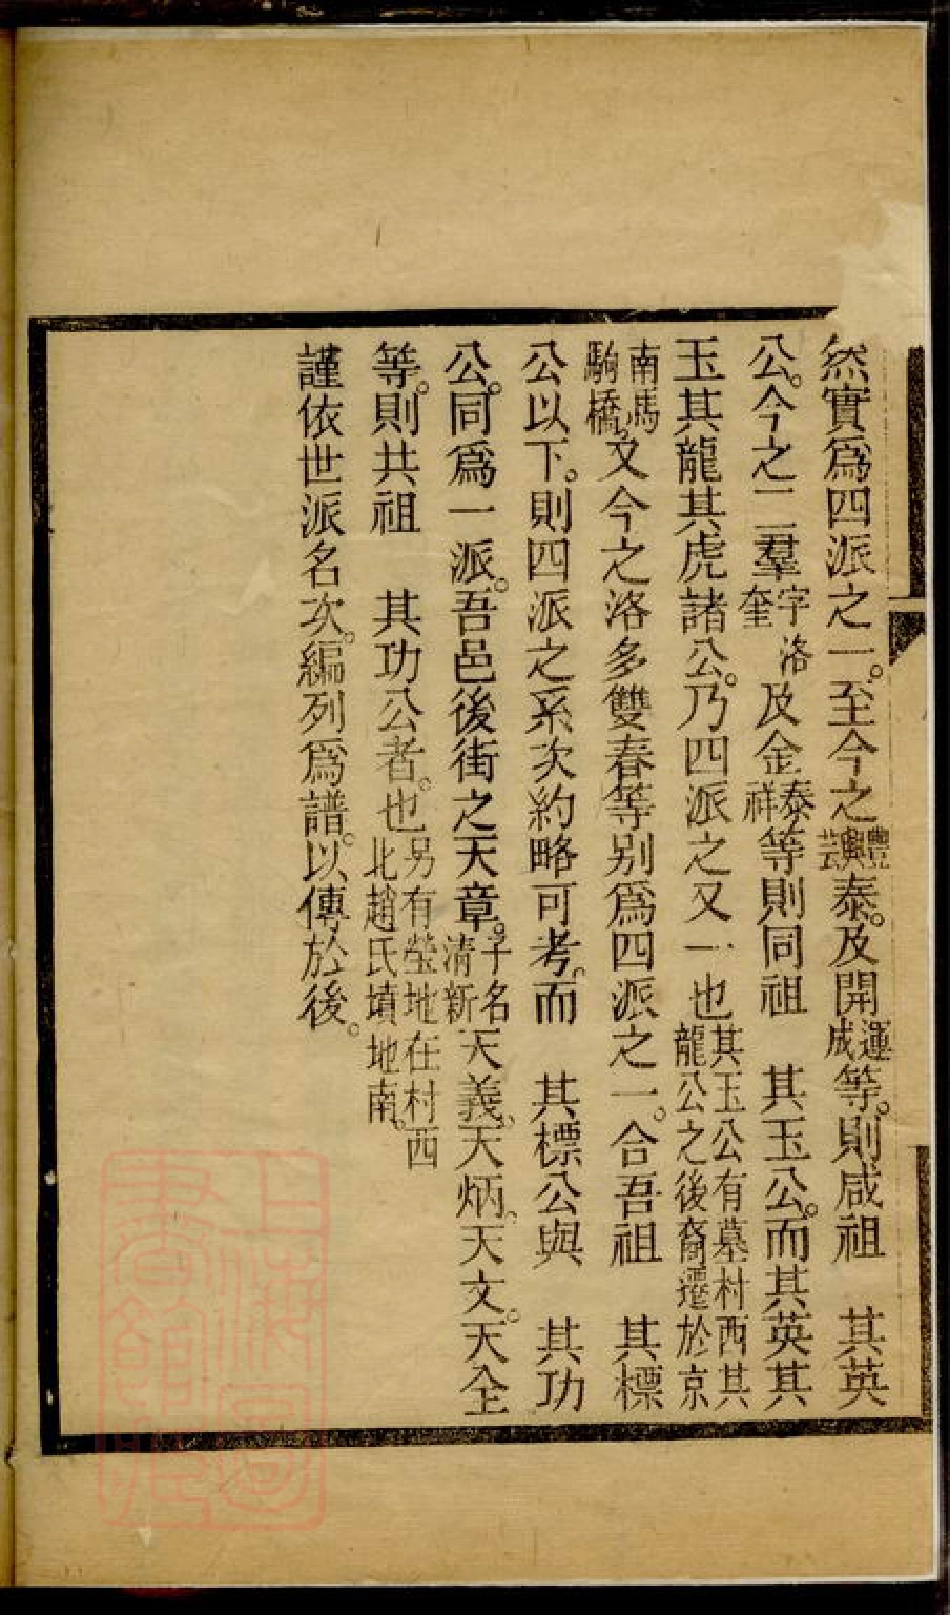 然實爲四派之一。至今之豐興芸泰。及開運成等。則咸祖　其英
公。今之二羣字洛奎及金泰祥等則同祖　其玉公。而其英其
玉其龍其虎諸公。乃四派之又一也其玉公有墓村西其龍公之後裔遷於京
南馬駒橋。又今之洛多雙春等別爲四派之一。合吾祖　其標
公以下。則四派之系次約略可考。而　其標公與　其功
公。同爲一派。吾邑後街之天章。子名清新天義。天炳。天文。天全
等。則共祖　其功公者。也另有塋地在村西北趙氏墳地南。
謹依世派名次。編列爲譜。以傳於後。
上海圖書館藏